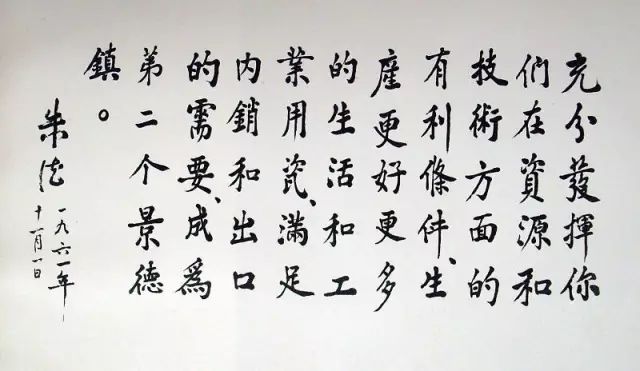 充分發揮你
們在資源和
技術方面的
有利條件、生
產更好更多
的生活和工
業用瓷、滿足
内銷和出口
的需要、成爲
弟二个景德
鎮。
朱德
一九六一年
十一月一日